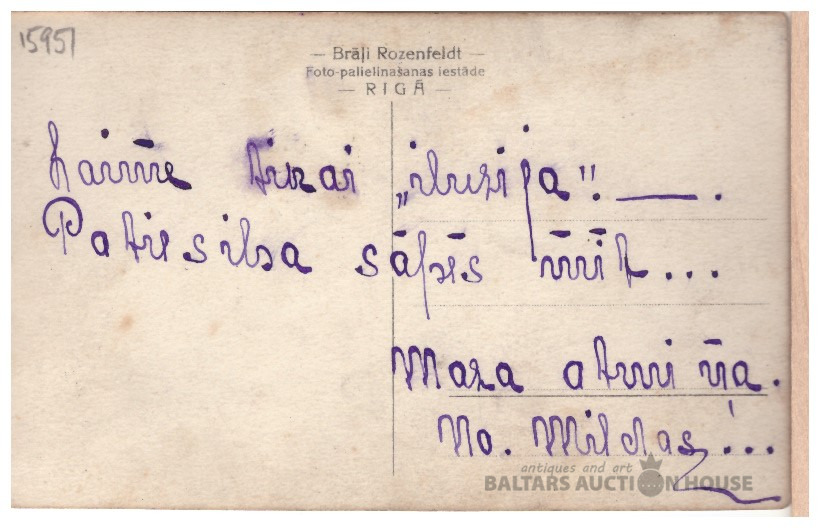 15951
— Brāļi Rozenfeldt —
Foto-palielinašanas iestāde
— RIGĀ —
Laime tikai „iluzija“! — .
Patiesiba sāpēs mīt...
Maza atmiņa.
No. Mildas!...
antiques and art
BALTARS AUCTION HOUSE